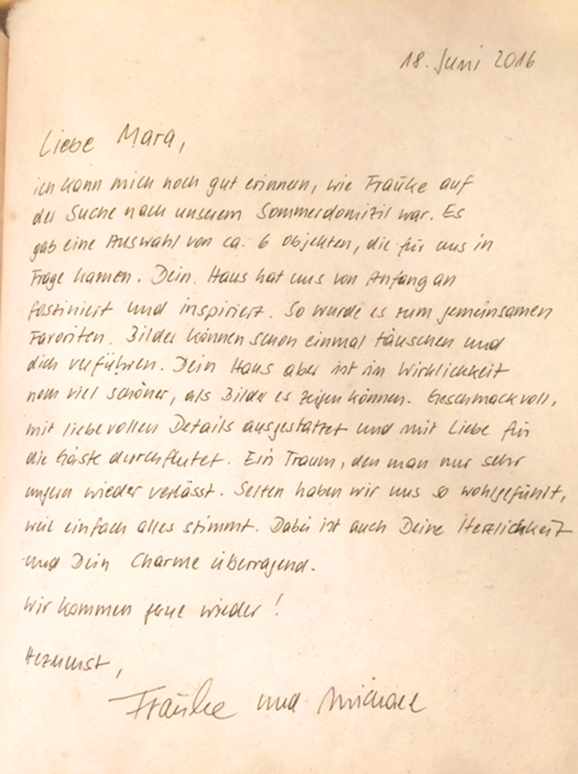 18. Juni 2016
Liebe Mara,
ich kann mich noch gut erinnern, wie Frauke auf
der Suche nach unserem Sommerdomizil war. Es
gab eine Auswahl von ca. 6 Objekten, die für uns in
Frage kamen. Dein Haus hat uns von Anfang an
fasziniert und inspiriert. So wurde es zum gemeinsamen
Favoriten. Bilder können schon einmal täuschen und
dich verführen. Dein Haus aber ist in Wirklichkeit
noch viel schöner, als Bilder es zeigen können. Geschmackvoll,
mit liebevollen Details ausgestattet und mit Liebe für
die Gäste durchflutet. Ein Traum, den man nur sehr
ungern wieder verlässt. Selten haben wir uns so wohlgefühlt,
weil einfach alles stimmt. Dabei ist auch Deine Herzlichkeit
und Dein Charme überragend.
Wir kommen gerne wieder!
Herzlichst,
Frauke und Michael